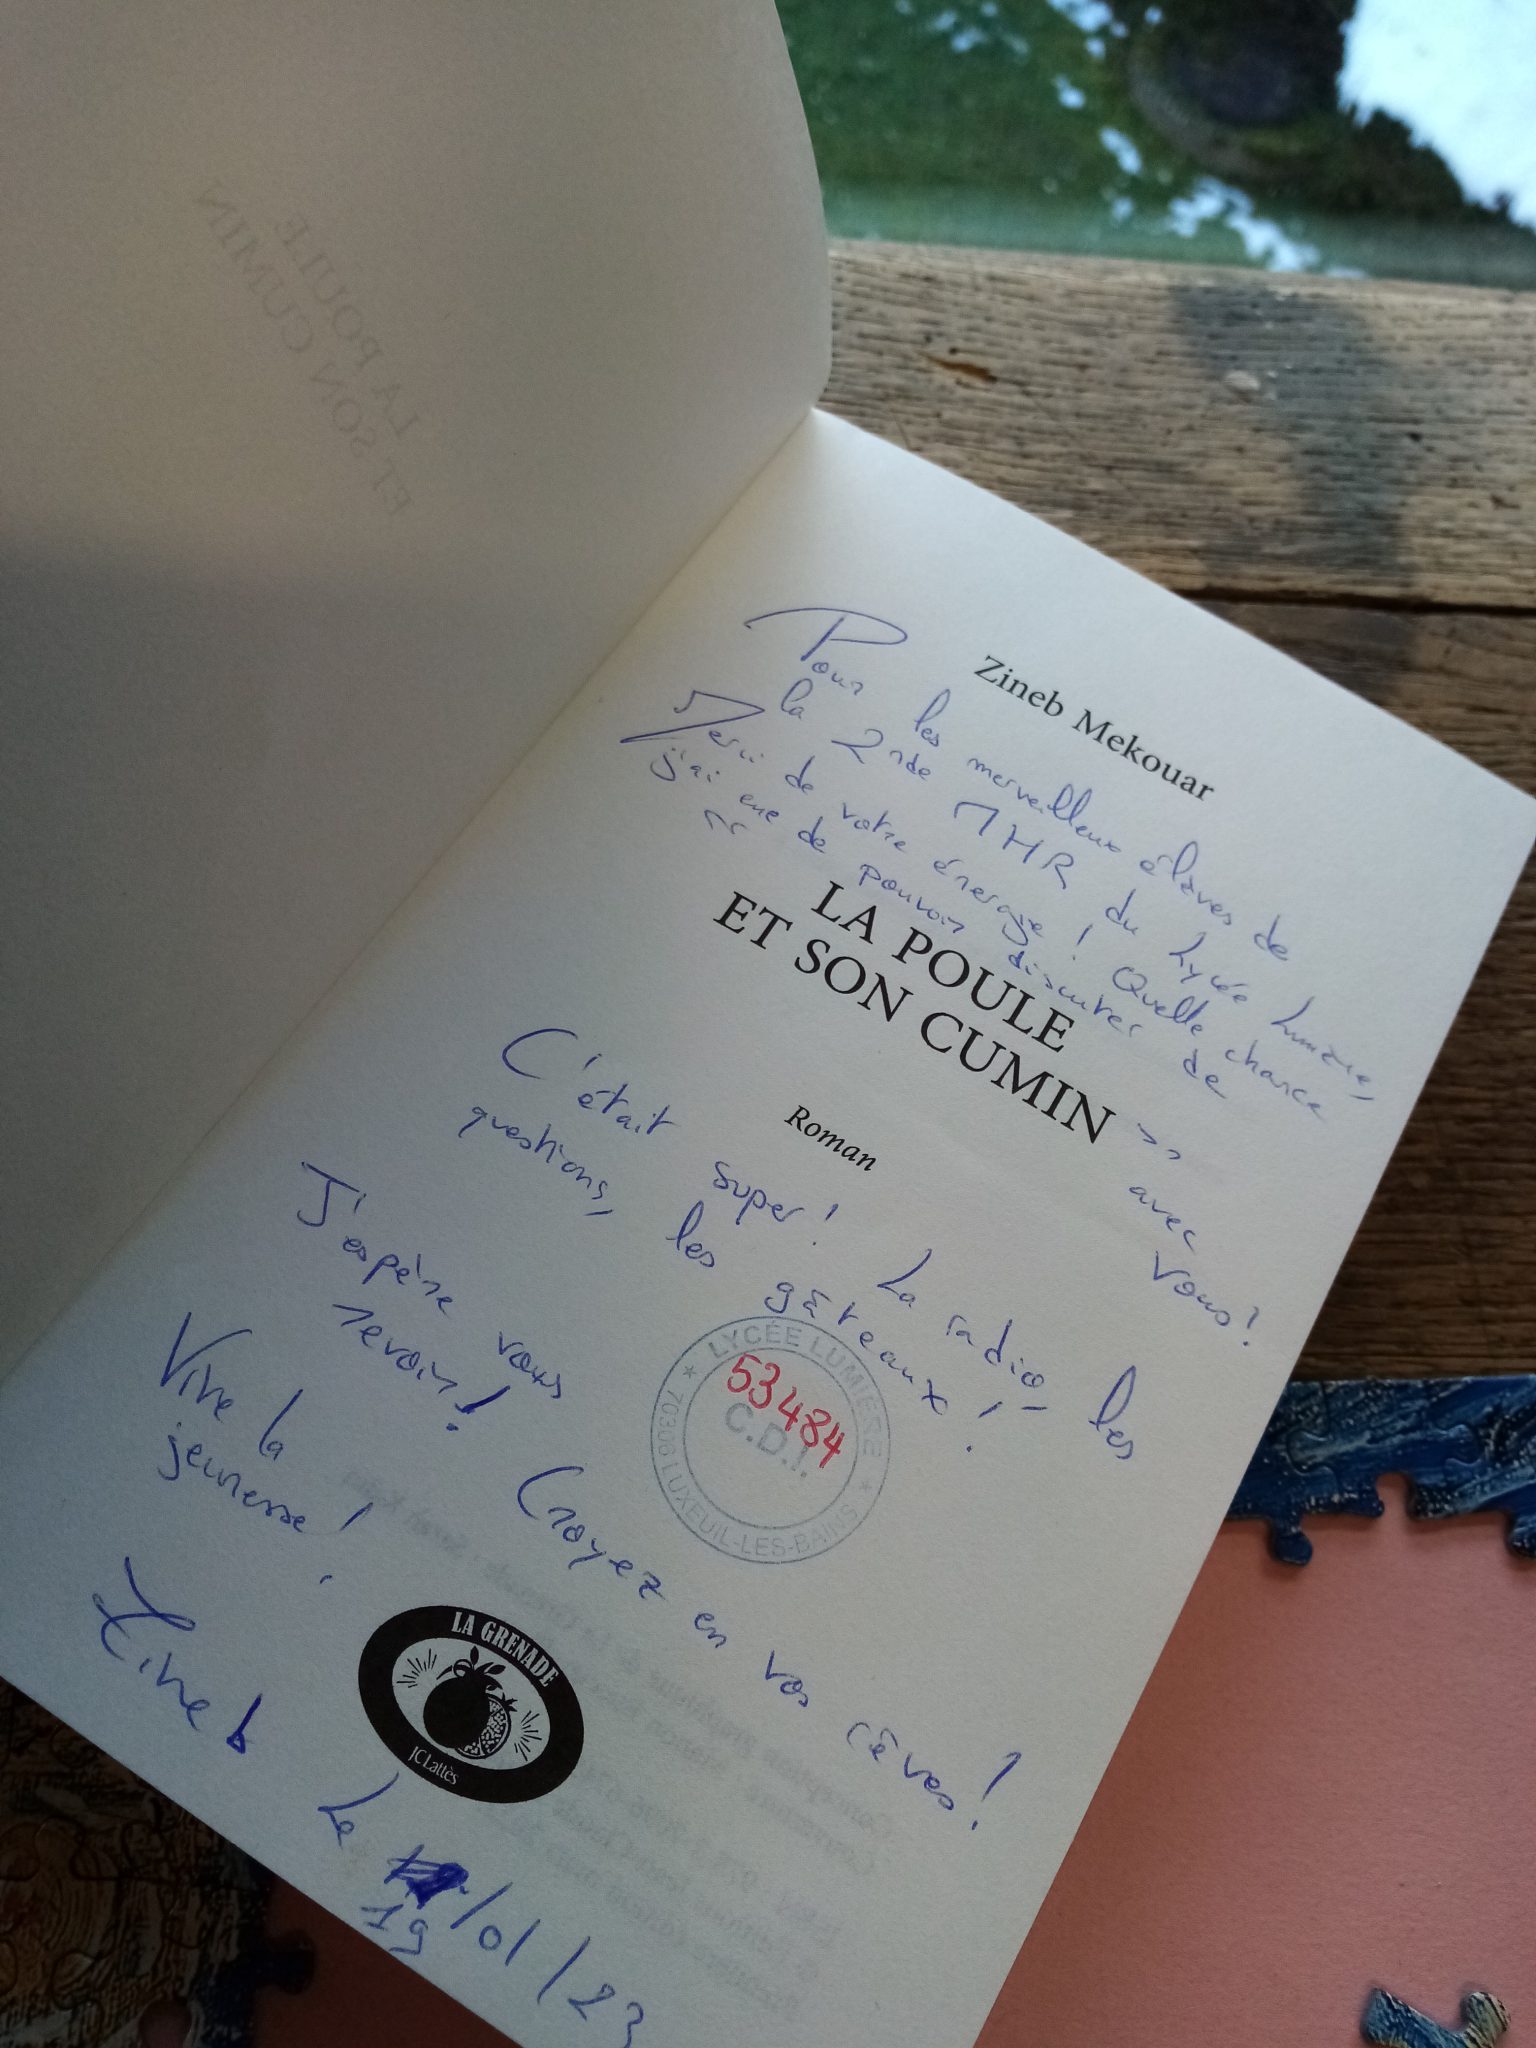 LA POULE
ET SON CUMIN
Zineb Mekouar
Pour les merveilleux élèves de
la 2nde MHR du Lycée Lumière,
Merci de votre énergie ! Quelle chance
j'ai eue de pouvoir discuter de
" LA POULE
ET SON CUMIN "
avec vous !
Roman
C'était super ! La radio, les
questions, les gâteaux !
J'espère vous
revoir !
LYCÉE LUMIÈRE
53484
C.D.I.
70306 LUXEUIL-LES-BAINS
Vive la
jeunesse !
Croyez en vos rêves !
Zineb
LA GRENADE
JC Lattès
Le /01/23
19